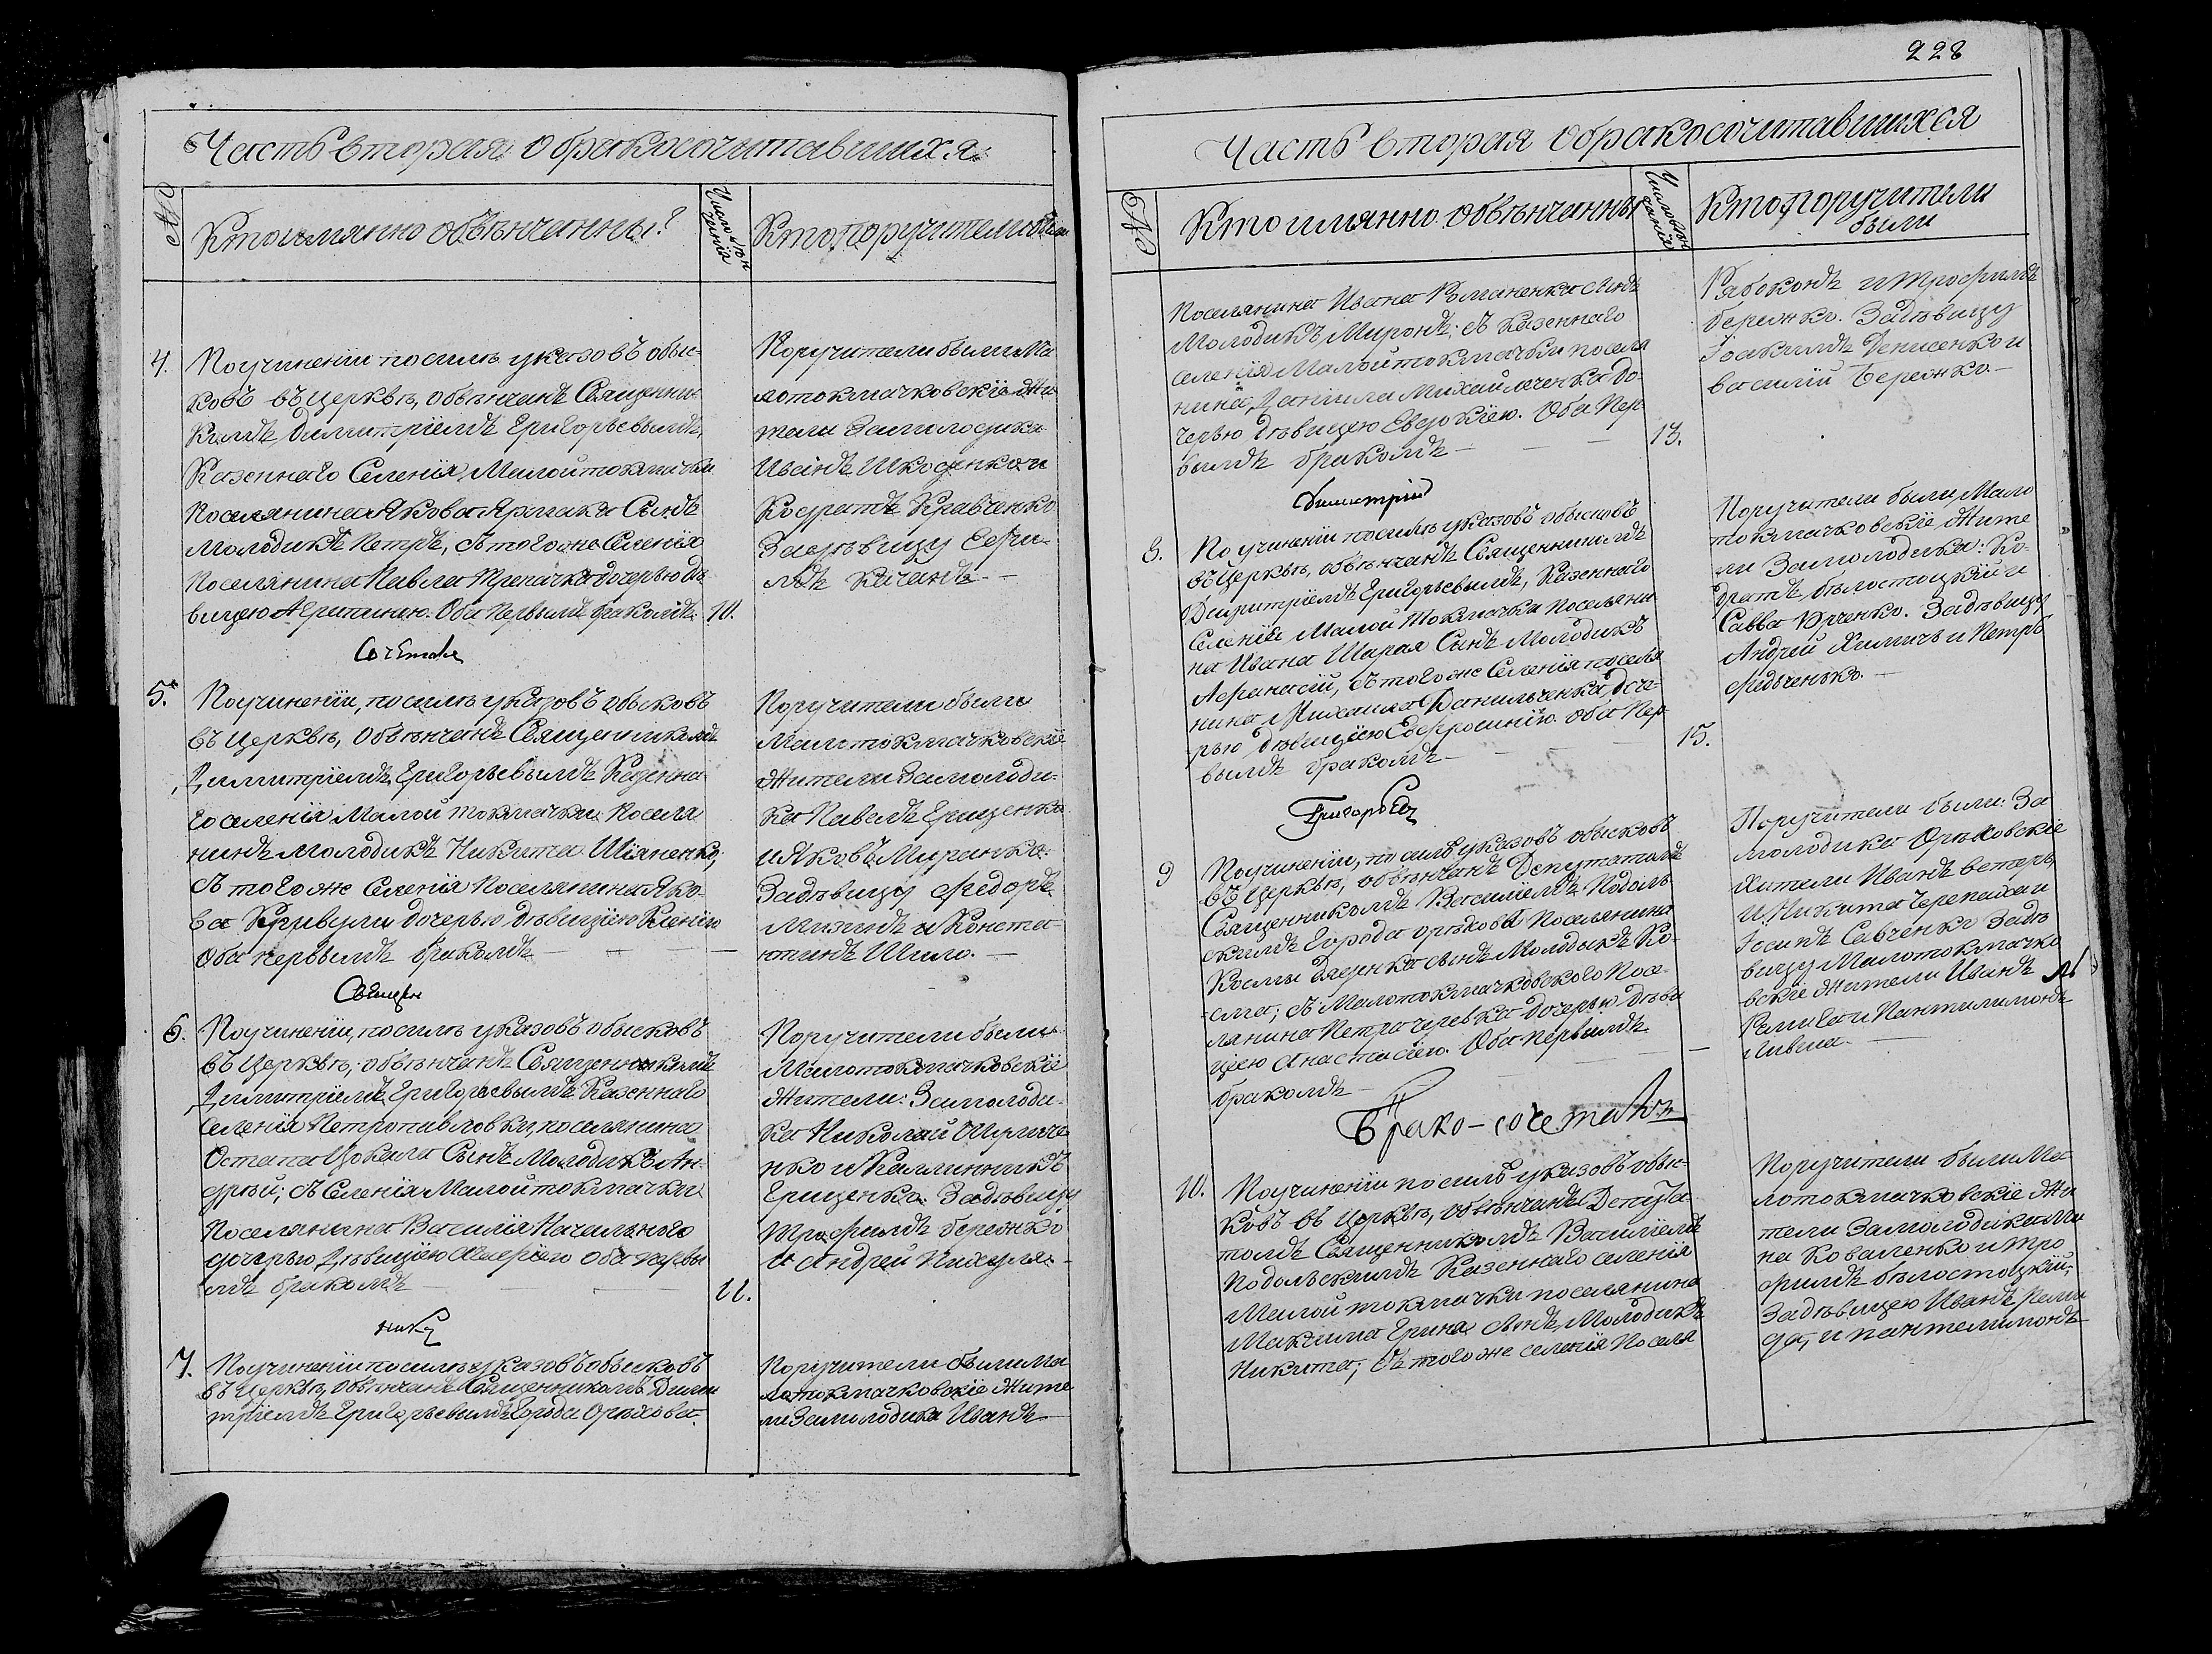 Часть вторая о бракосочитавшихся
№
Кто имянно обвѣнчанны?
Число вѣн
чанія
Кто поручители были
4.
По учиненіи по силѣ указовъ обыс-
ковъ въ Церквѣ, обвѣнчанъ Священни-
комъ Димитріемъ Григорьевымъ,
Казеннаго Селенія Малой токмачки
поселянина Якова Ярмака Сынъ
Молодикъ Петръ, съ того же Селенія
поселянина Павла дочерью дѣ-
вицею Агрипиною. Оба первымъ бракомъ.
10.
Поручители были Ма
лотокмачковскіе Жи
тели За молодика
Иванъ Шкоденко и
Кодратъ Кравченко
За дѣвицу Ефи-
мъ Качанъ.
5.
По учиненіи, по силѣ указовъ обысковъ
въ Церквѣ, Обвѣнчанъ Священникомъ
Димитріемъ Григорьевымъ Казенна-
го селенія Малой токмачки Поселя
нинъ Молодикъ Никита
съ того же Селенія Поселянина Яко-
ва дочерью дѣвицею
Оба первымъ бракомъ
Поручители были
Малотокмачковскіе
Жители За молоди-
ка Павелъ Грищенко
и Яковъ
За дѣвицу Федоръ
и Конста-
нтинъ Шило.
Священ
6.
По учиненіи, по силѣ указовъ обысковъ
въ Церквѣ, обвѣнчанъ Священникомъ
Димитріемъ Григорьевымъ Казеннаго
селенія Петропавловки, поселянина
Остапа Сынъ Молодикъ Ан-
дрей; съ Селенія Малой токмачки
Поселянина Василія
дочерью Дѣвицею Оба первы
мъ бракомъ
11.
Поручители были
Малотокмачковскіе
Жители: За молоди-
ка Николай
нко и Калинникъ
Грищенко. За дѣвицу
Трофимъ бережко
и Андрей
нику
7.
По учиненіи по силѣ указовъ обысковъ
въ Церквѣ, Обвѣнчанъ Священникомъ Дими
тріемъ Григорьевымъ Города Орѣхова
Поручители были Ма
лотокмачковскіе Жите
ли За молодика Иванъ
228
Часть вторая о бракосочитавшихся
№
Кто имянно обвѣнчанны
Число вѣн
чанія
Кто поручители
были
Поселянина Ивана Романенка сынъ
Молодикъ Миронъ; съ Казеннаго
селенія Малой токмачки поселя
нина Данила Михайличенка до-
черью дѣвицею Евдокіею. Оба пер-
вымъ бракомъ
13.
Рябоконь и Трофимъ
бережко. За дѣвицу
Іоакимъ Денисенко и
Василій Бережко.
Димитрій
8.
По учиненіи по силѣ указовъ обысковъ
въ Церквѣ, обвѣнчанъ Священникомъ
Димитріемъ Григорьевымъ, Казеннаго
Селенія Малой Токмачки Поселяни
на Ивана Шарая Сынъ Молодикъ
Афанасій, съ того же Селенія поселя
нина Михаила Данильченка доче-
рью дѣвицею Евфросиніею. Оба Пер-
вымъ бракомъ
15.
Поручители были Мало
токмачковскіе Жите
ли За молодика: Ко-
дратъ бѣлостоцкій и
Савва Юрченко. За дѣвицу
Андрей Химичъ и Петръ
Григорьев
9
По учиненіи, по силѣ указовъ обысковъ
въ Церквѣ, обвѣнчанъ Депутатомъ
Священникомъ Василіемъ Подоль-
скимъ города орѣхова Поселянина
Космы сынъ Молодыкъ Ко-
сма; съ Малотокмачковского Посе-
лянина Петра дочерью дѣви
цею Анастасіею. Оба первымъ
бракомъ
Поручители были: За
молодика Орѣховскіе
жители Иванъ
и Никита Черепаха и
Савченко За дѣ
вицу Малотокмачко
вскіе Жители Иванъ
и Пантилимонъ
Брако-сочетавш
10.
По учиненіи по силѣ указовъ обыс-
ковъ въ Церквѣ, обвѣнчанъ Депута
томъ Священникомъ Василіемъ
Подольскимъ Казеннаго селенія
Малой токмачки поселянина
Максима сынъ Молодикъ
Никита; съ того же селенія Поселя
Поручители были Ма-
лотокмачковскіе Жи
тели За молодика Ми
на Коваленко и Тро
фимъ бѣлостоцкій;
За дѣвицею Иванъ
и пантелимонъ